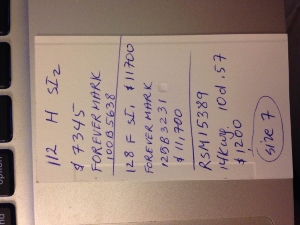 112 H SI2
$7345
FOREVERMARK
100B5638
128 F SI. $11700
FOREVERMARK
12983231
$11,700
RSM15389
14Kwg 10d .57
$1200
size 7
option